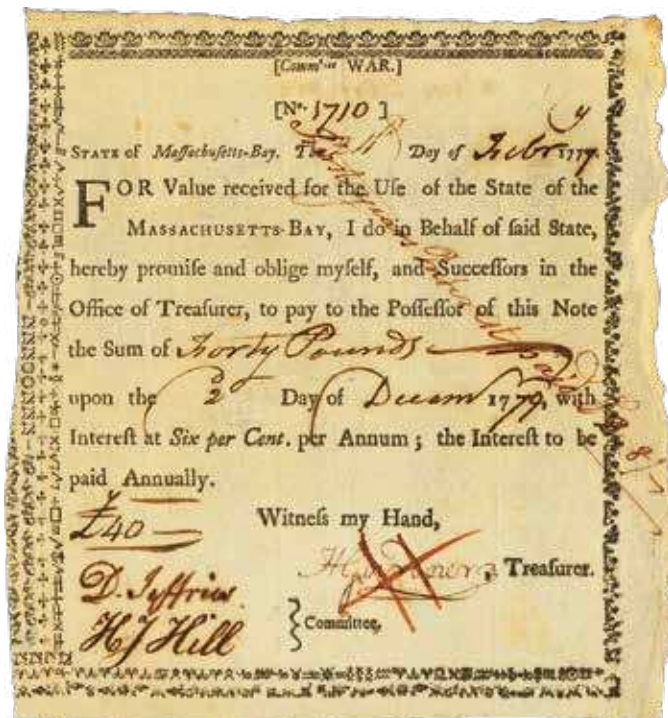 [Comm'ee WAR.]
[No. 1710 ]
STATE of Maſſachuſetts-Bay. The Day of Febry 1777.
FOR Value received for the Uſe of the State of the
MASSACHUSETTS-BAY, I do in Behalf of ſaid State,
hereby promiſe and oblige myſelf, and Succeſſors in the
Office of Treaſurer, to pay to the Poſſeſſor of this Note
the Sum of Forty Pounds
upon the 2 Day of Decemr 1779, with
Intereſt at Six per Cent. per Annum ; the Intereſt to be
paid Annually.
£40
Witneſs my Hand,
H Gardner, Treaſurer.
D. Jeffries
H J Hill
} Committee.